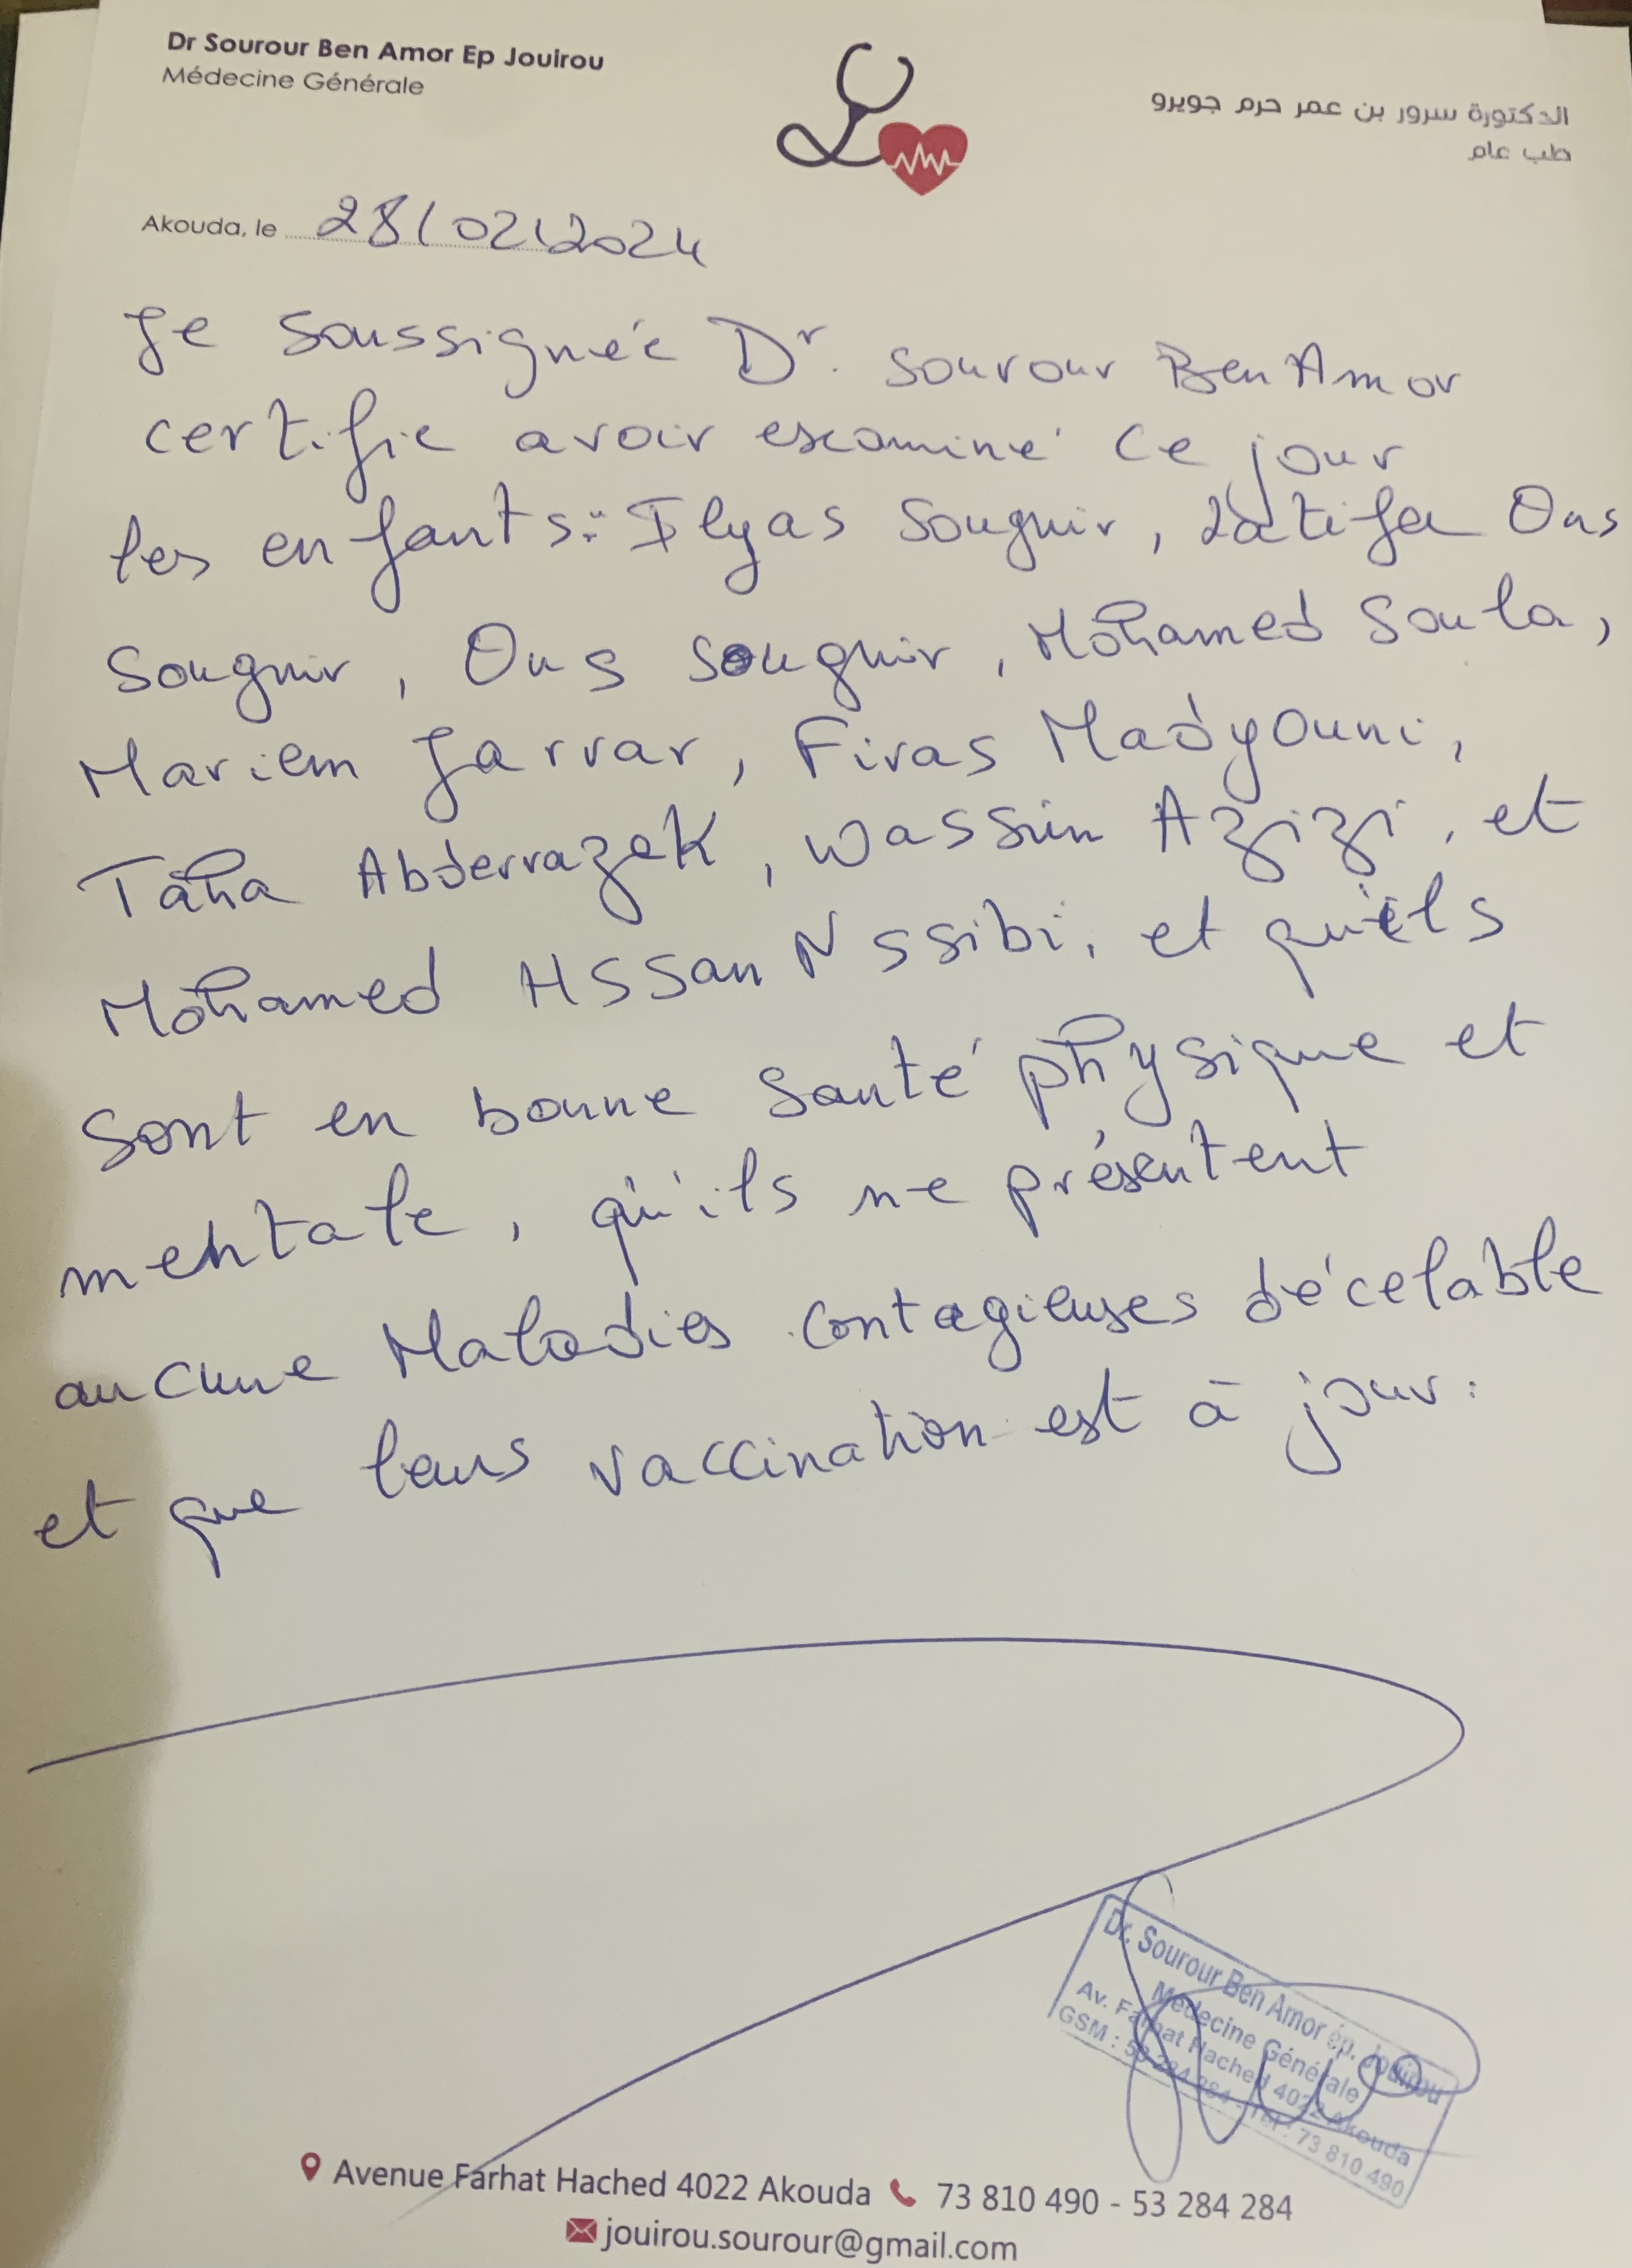 Dr Sourour Ben Amor Ep Jouirou
Médecine Générale
الدكتورة سرور بن عمر حرم جويرو
طب عام
Akouda, le 28/02/2024
Je soussignée Dr. Sourour Ben Amor
certifie avoir examiné ce jour
les enfants: Ilyas Souguir, Latifa Ons
Souguir, Ons Souguir, Mohamed Soula,
Mariem Jarrar, Firas Madyouni,
Taha Abderrazek, Wassim Azizi, et
Mohamed Hssan Nssibi, et qu'ils
sont en bonne santé physique et
mentale, qu'ils ne présentent
aucune Maladies contagieuses décelable
et que leurs vaccination est à jour.
Dr. Sourour Ben Amor ép. Jouirou
Médecine Générale
Av. Farhat Hached 4022 Akouda
GSM : 53 284 284 - Tél : 73 810 490
Avenue Farhat Hached 4022 Akouda 73 810 490 - 53 284 284
jouirou.sourour@gmail.com